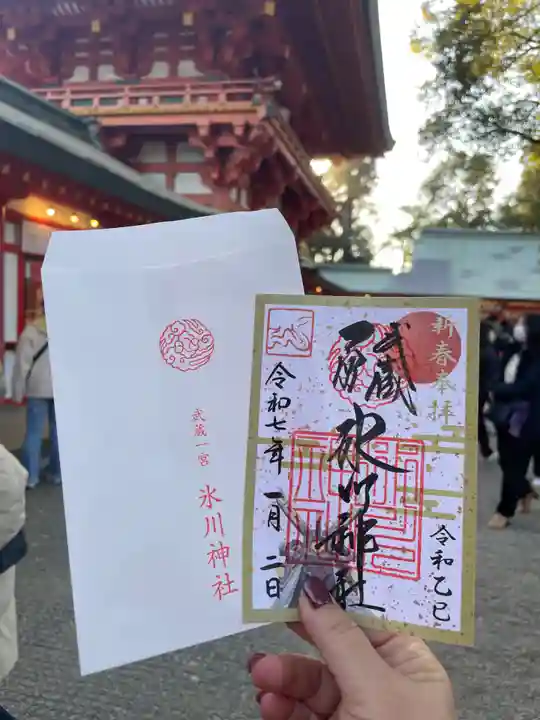 武蔵一宮
氷川神社
新春奉拝
武蔵
一宮
氷川神社
令和七年一月二日
令和乙巳